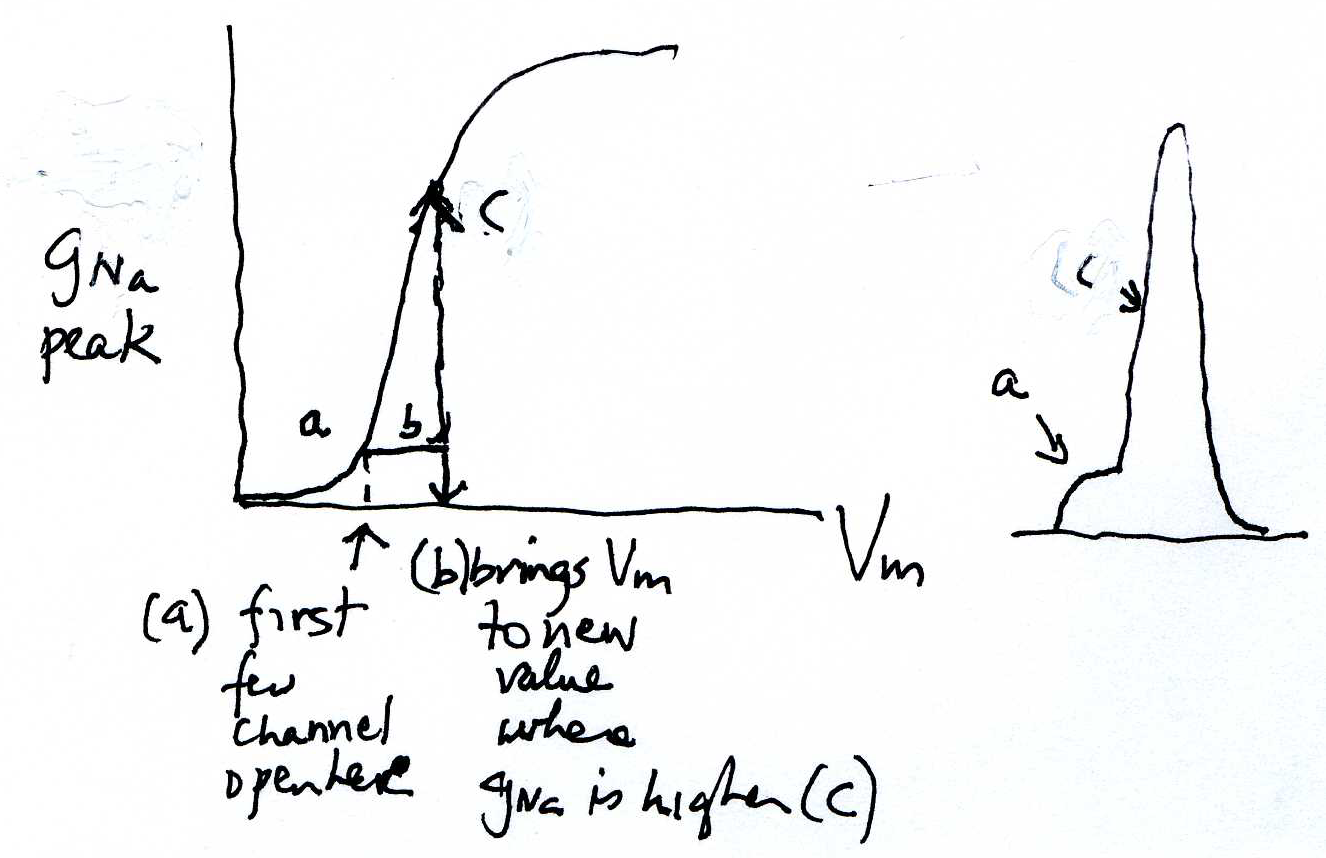 gNa
peak
a
b
C
Vm
(a) first
few
channel
open here
(b) brings Vm
to new
value
where
gNa is higher (C)
a
C